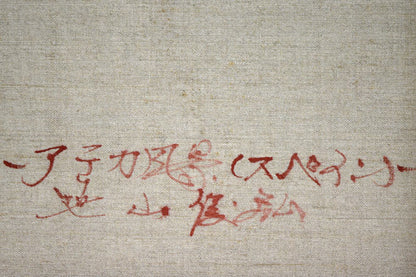 -アテカ風景(スペイン)-
山 俊弘